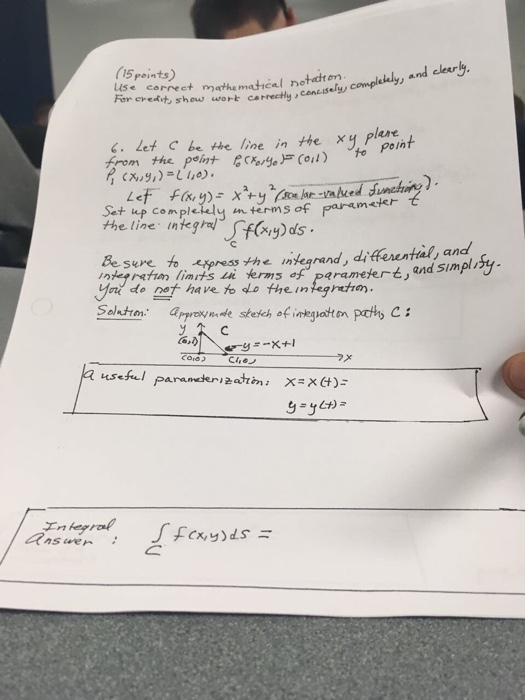 (15 points)
Use correct mathematical notation.
For credit, show work correctly, concisely, completely, and clearly.
6. Let C be the line in the xy plane
from the point P₀(x₀,y₀)=(0,1) to point
P₁(x₁,y₁)=(1,0).
Let f(x,y)= x²+y² (scalar-valued function).
Set up completely in terms of parameter t
the line integral ∫_C f(x,y)ds.
Be sure to express the integrand, differential, and
integration limits in terms of parameter t, and simplify.
You do not have to do the integration.
Solution: Approximate sketch of integration path, C:
y C
(0,1) y=-x+1
(0,0) (1,0) x
a useful parameterization: x=x(t)=
y=y(t)=
Integral
Answer : ∫_C f(x,y)ds =